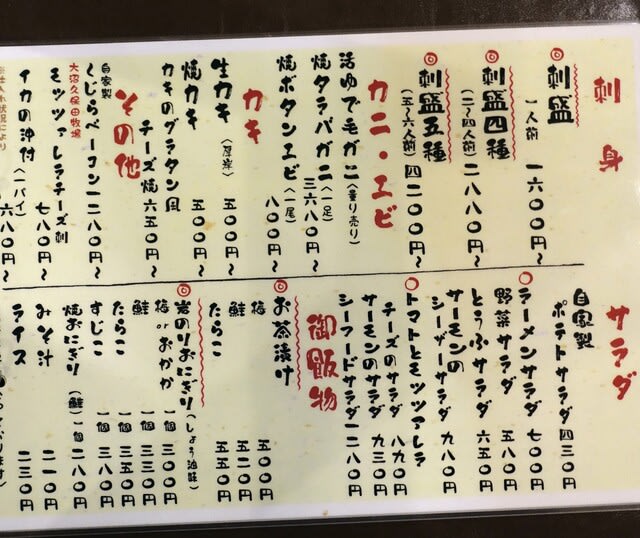 刺身
◎刺盛
一人前 一六〇〇円〜
◎刺盛四種
(二〜四人前) 二八〇〇円〜
◎刺盛五種
(五〜六人前) 四二〇〇円〜
カニ・エビ
活ゆで毛ガニ(量り売り)
焼タラバガニ(一足)
三六八〇円〜
焼ボタンエビ(一尾)
八〇〇円〜
カキ
生カキ(厚岸) 五〇〇円〜
焼カキ 五〇〇円〜
カキのグラタン風
チーズ焼 六五〇円〜
その他
自家製
くじらベーコン 一二八〇円〜
大沼久保田牧場
モッツァレラチーズ刺
七八〇円〜
イカの沖付(一パイ)
六八〇円〜
※仕入れ状況により
サラダ
自家製
ポテトサラダ 四三〇円
○ラーメンサラダ 七〇〇円
野菜サラダ 五八〇円
とうふサラダ 六五〇円
サーモンの
シーザーサラダ 九八〇円
○トマトとモッツァレラ
チーズのサラダ 八九〇円
サーモンのサラダ 九三〇円
シーフードサラダ 一二八〇円
御飯物
◎お茶漬け
梅 五〇〇円
鮭 五二〇円
たらこ 五五〇円
◎岩のりおにぎり(しょう油味)
梅orおかか 一個 三〇〇円
鮭 一個 三三〇円
たらこ 一個 三五〇円
すじこ 一個 三八〇円
焼おにぎり(鮭)一個 二八〇円
みそ汁 二一〇円
ライス 二三〇円